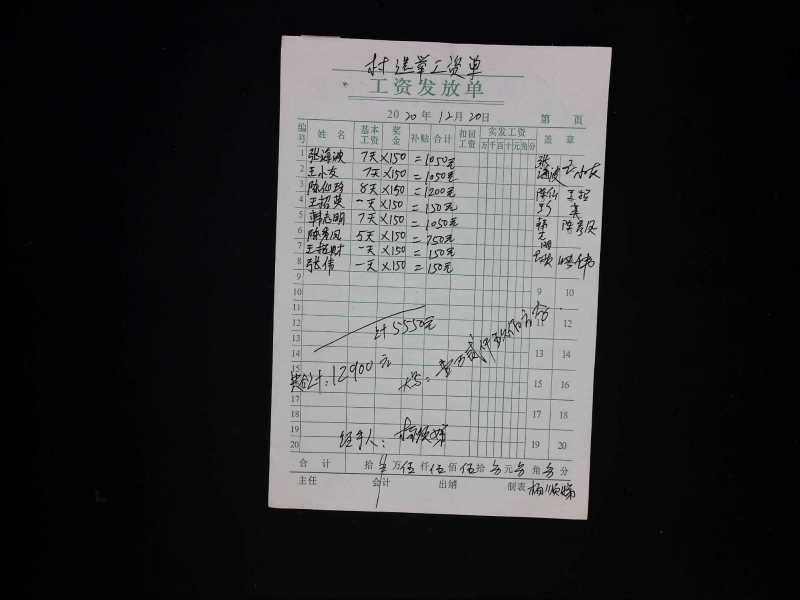 村选举工资单
工资发放单
2020年12月20日 第 页
编号 姓名 基本工资 奖金 补贴 合计 扣回工资 实发工资 万千百十元角分 盖章
1 张海波 7天×150=1050元 张海波
2 王小友 7天×150=1050元 王小友
3 陈仙玲 8天×150=1200元 陈仙
4 王招英 一天×150=150元 王招英
5 韩志明 7天×150=1050元
6 陈秀凤 5天×150=750元 陈秀凤
7 一天×150=150元
8 张伟 一天×150=150元
9
10
11
12
13
14
15
17
18
19
20
9 10
11 12
13 14
15 16
17 18
19 20
计5550元
共合计:12900元
大写:壹万贰仟玖佰元
经手人:
合计 拾 万伍仟伍佰伍拾 元 角 分
主任 会计 出纳 制表